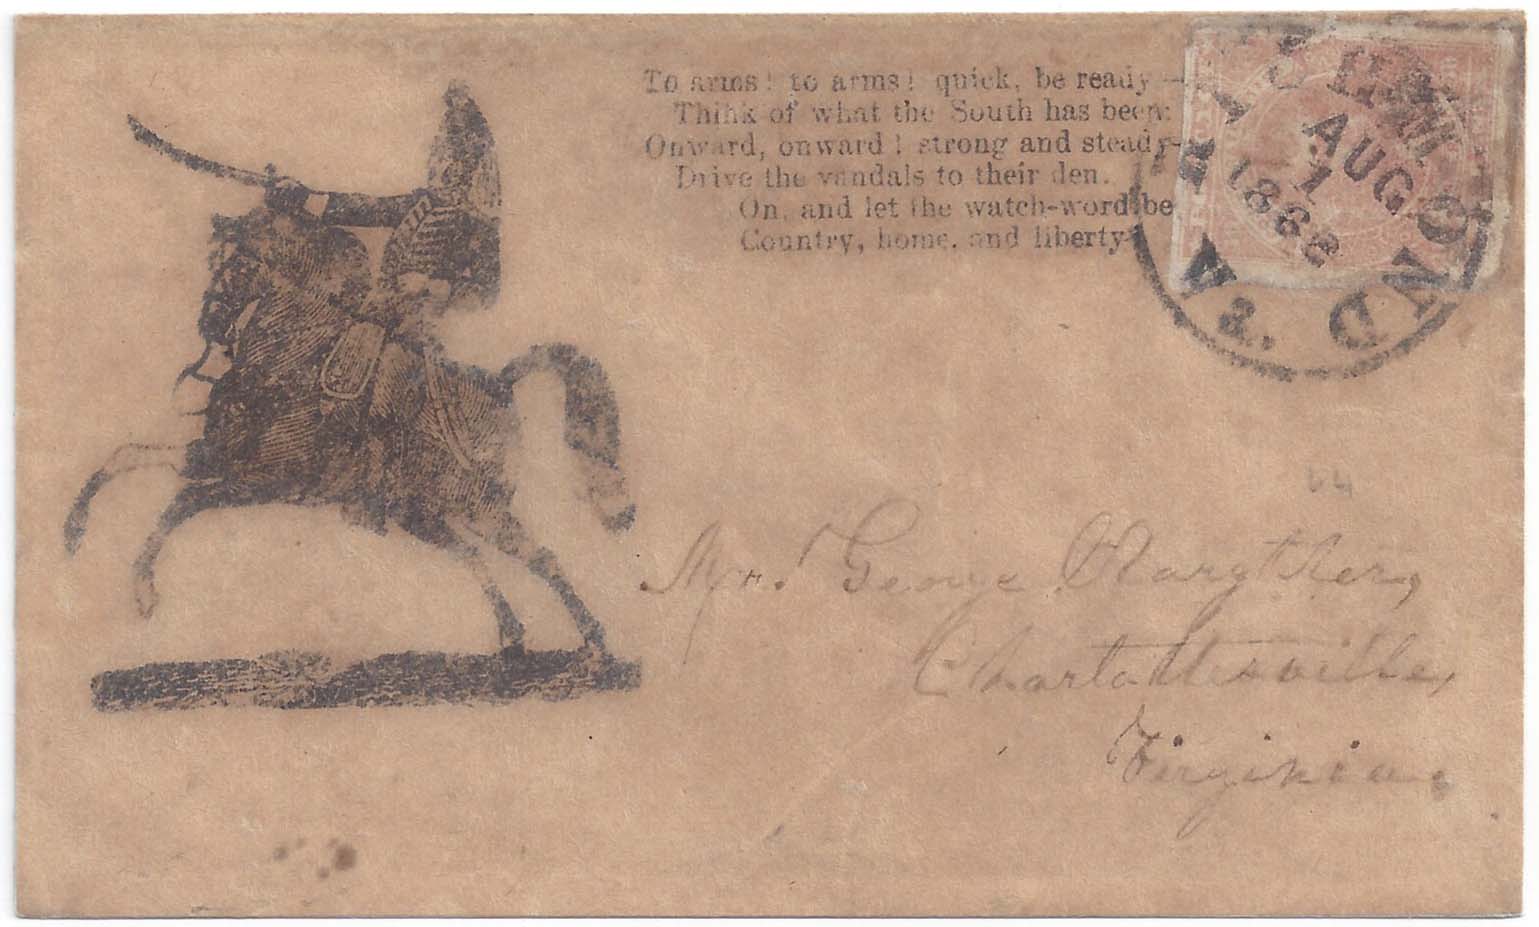 To arms! to arms! quick, be ready—
Think of what the South has been;
Onward, onward! strong and steady—
Drive the vandals to their den.
On, and let the watch-word be
Country, home, and liberty.
RICHMOND
Va.
AUG
1
1862
Mrs George
Charlottesville,
Virginia.